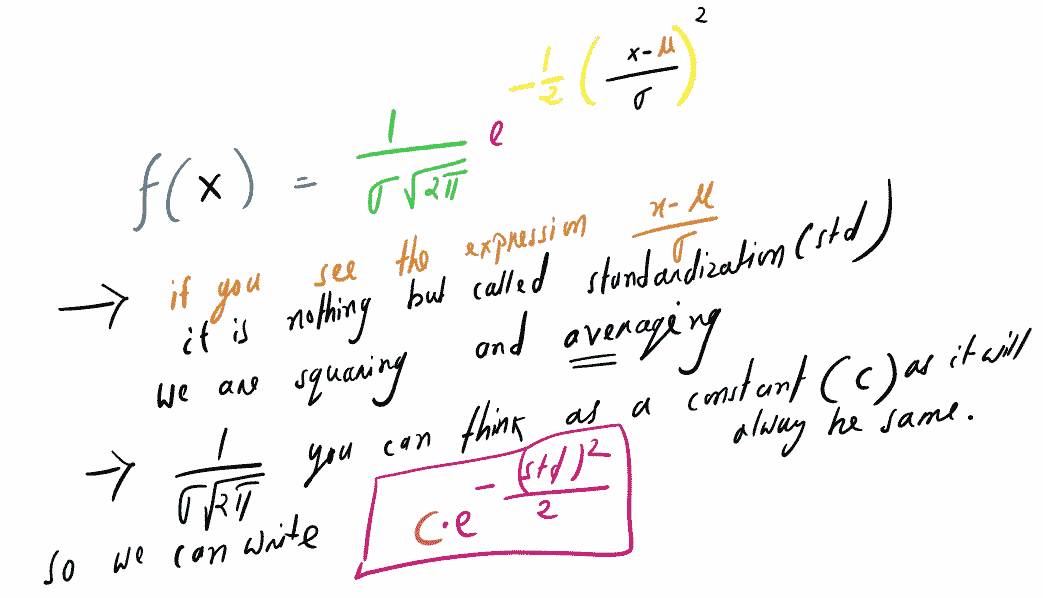 f(x) = 1/(σ√2π) e^(-1/2 ((x-μ)/σ)^2)
→ if you see the expression (x-μ)/σ
it is nothing but called standardization(std)
we are squaring and averaging
→ 1/(σ√2π) you can think as a constant (c) as it will
alway be same.
so we can write c·e^(-(std)^2/2)